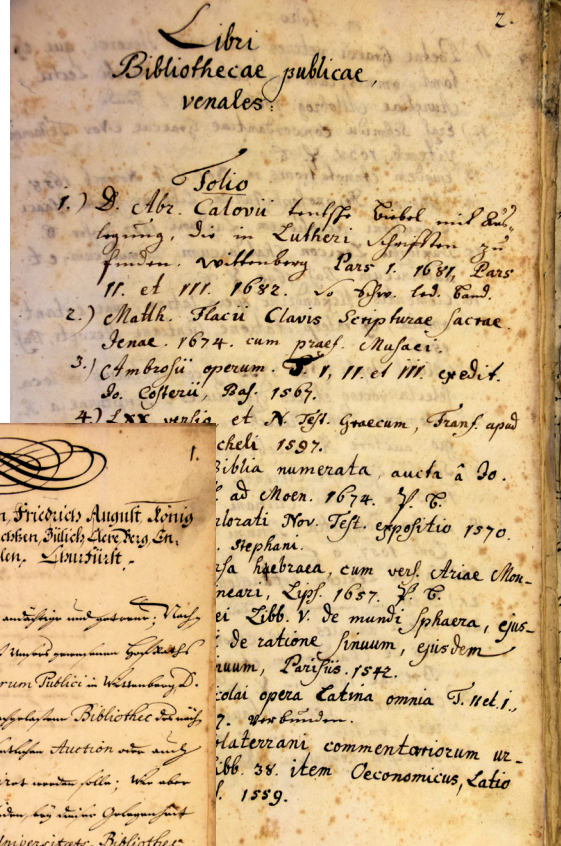 2.
Libri
Bibliothecae publicae,
venales:
Folio
1.) D. Abr. Calovii teutsche Biebel mit Aus-
legung, die in Lutheri Schrifften zu
finden. Wittenberg Pars 1. 1681, Pars
II. et III. 1682. Schw. led. Band.
2.) Matth. Flacii Clavis Scripturae sacrae
Jenae. 1674. cum praef. Musaei.
3.) Ambrosii operum. T. 1, II et III. ex edit.
Jo. Costerii, Bas. 1567.
4.) LXX versio et N. Test. Graecum, Franf. apud
cheli 1597.
Biblia numerata, aucta â Jo.
ad Moen. 1674. P. B.
lorati Nov. Test. expositio 1570.
Stephani.
hebraea, cum vers. Ariae Mon-
neari, Lips. 1657. P. B.
ei Libb. V. de mundi sphaera, ejus-
de ratione sinuum, ejusdem
nuum, Parisiis. 1542.
colai opera Latina omnia T. II et 1.,
7. verbunden.
olaterrani commentariorum ur-
ibb. 38. item Oeconomicus, Latio
1559.
1.
n, Friedrich August, König
achsen, Jülich, Cleve, Berg, En-
len, Churfürst
andächtige und getreue; Nach
Unsers gewesenen Hofraths
rum Publici in Wittenberg D.
achgelassene Bibliothec da nöth
ntlichen Auction oder auch
iret werden solle; Wie aber
den, bey dieser Gelegenheit
Universitäts-Bibliothec